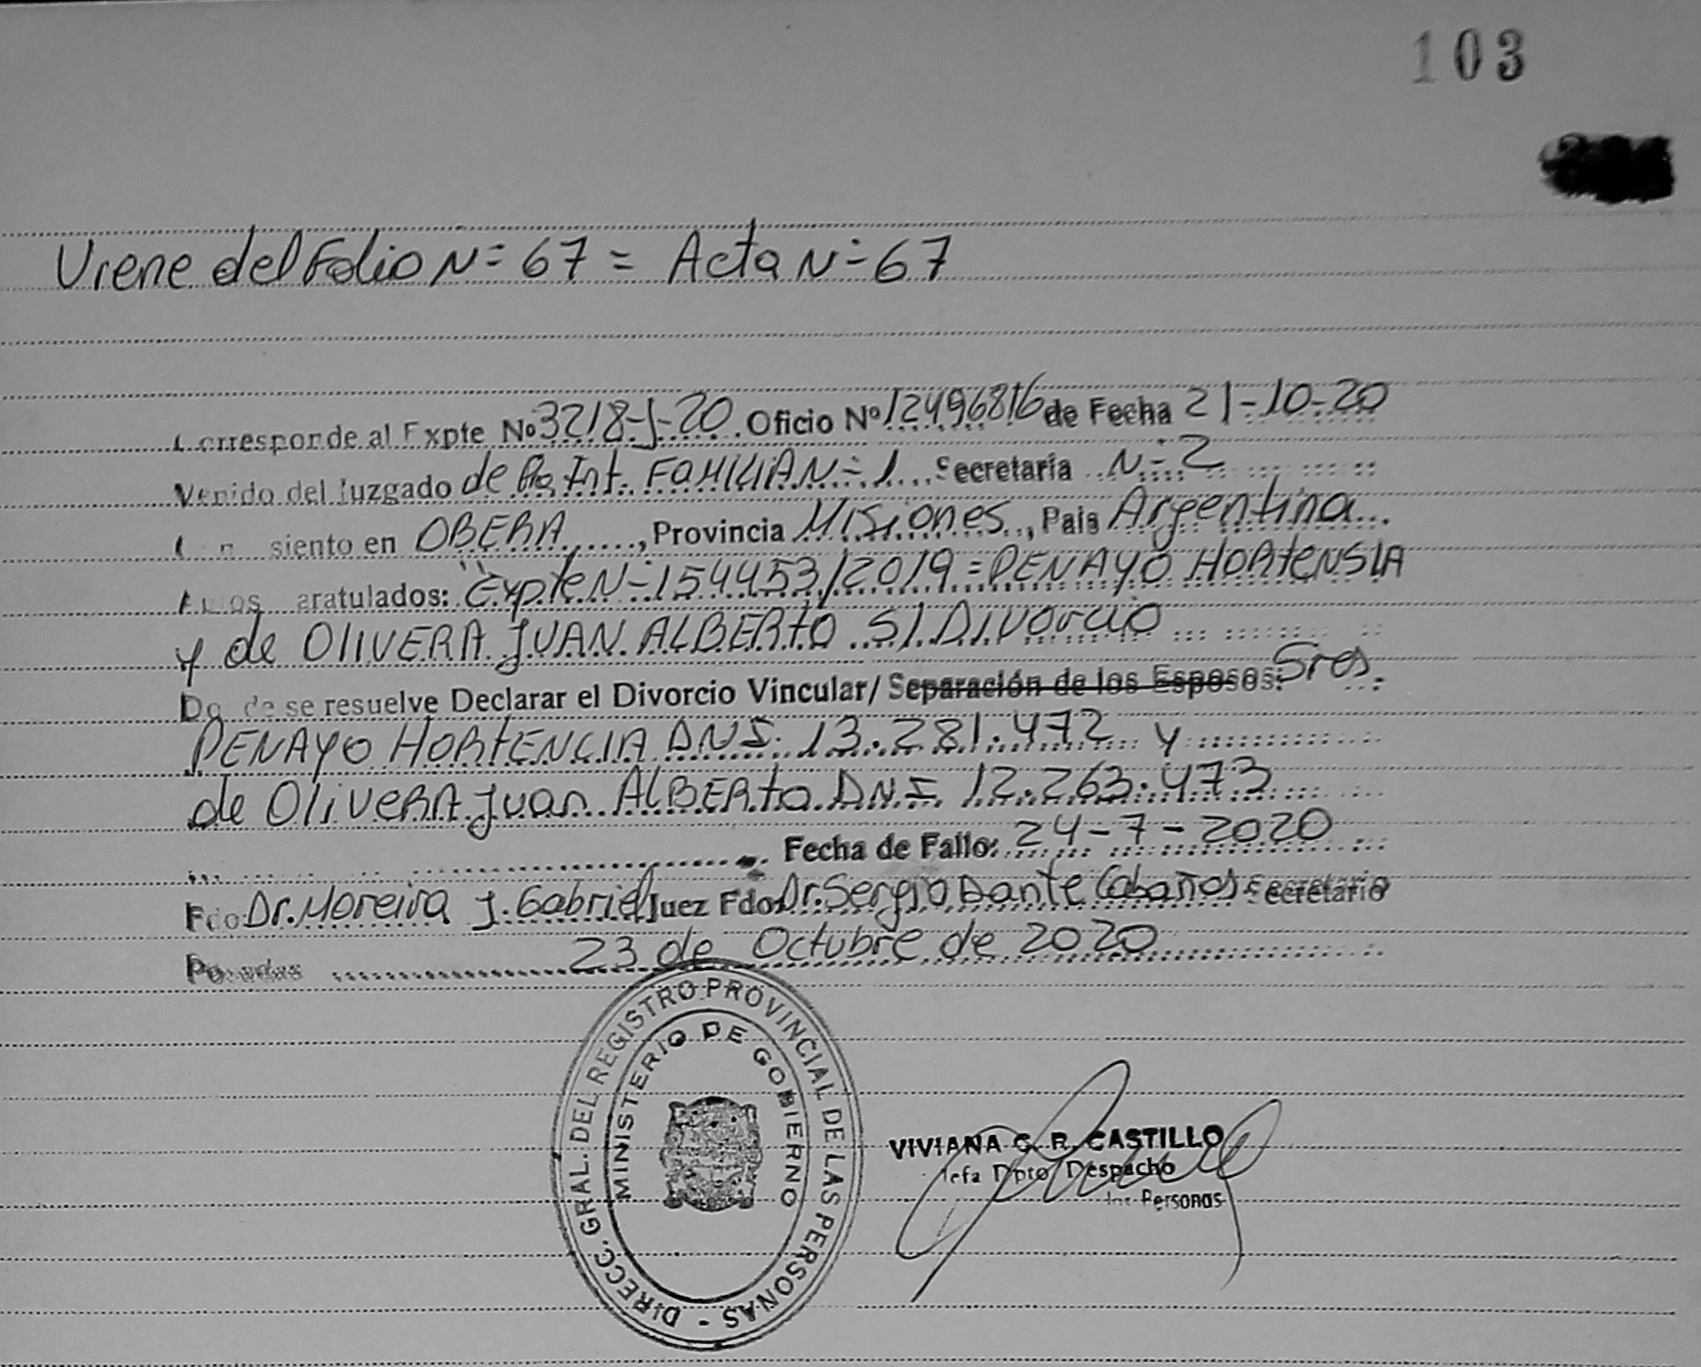 103
Viene del Folio N= 67 = Acta N= 67
Corresponde al Expte Nº 3218-J-20. Oficio Nº 12496816 de Fecha 21-10-20
Venido del Juzgado de Int. FAMILIA N= 1 Secretaría N= 2
siento en OBERA, Provincia Misiones, Pais Argentina
aratulados: "Expte N=154453/2019=PENAYO HORTENSIA
y de OLIVERA JUAN ALBERTO S/ Divorcio
se resuelve Declarar el Divorcio Vincular/ Separación de los Esposos: Sres.
PENAYO HORTENCIA DNI 13.281.472 y
de OliVERA Juan ALBERto DNI 12.263.473
Fecha de Fallo: 24-7-2020
Fdo Dr. Moreira J. Gabriel Juez Fdo: Dr. Sergio Dante Cabañas Secretario
Posadas 23 de Octubre de 2020
DIRECC. GRAL. DEL REGISTRO PROVINCIAL DE LAS PERSONAS -
MINISTERIO DE GOBIERNO
VIVIANA G. R. CASTILLO
Jefa Dpto Despacho
las Personas